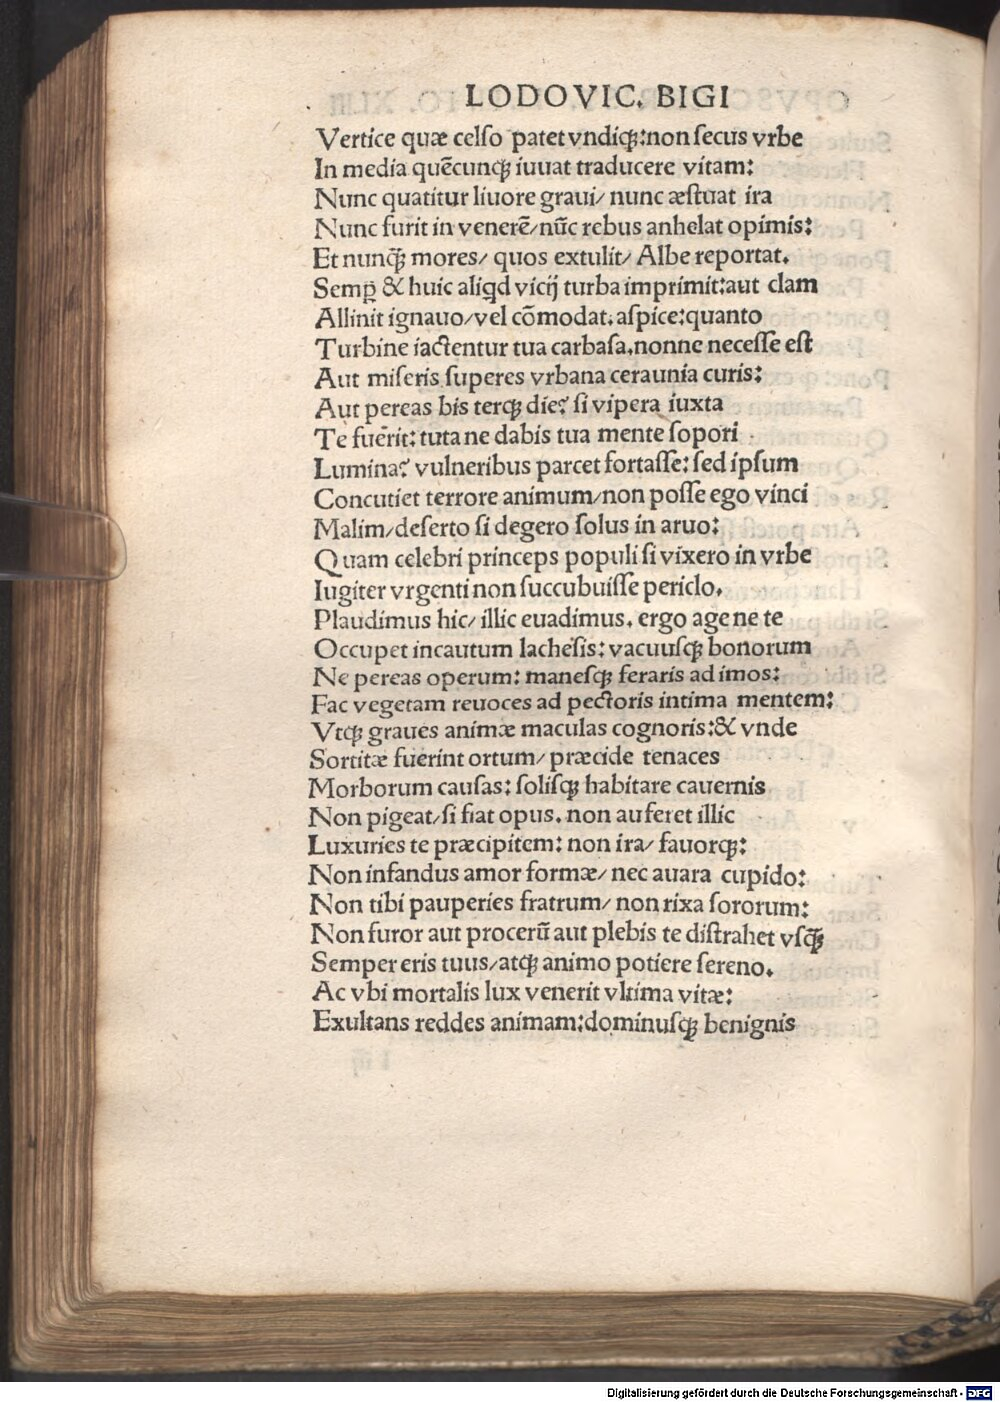 LODOVIC. BIGI
Vertice quæ celſo patet vndiqꝫ:non ſecus vrbe
In media quēcunqꝫ iuuat traducere vitam:
Nunc quatitur liuore graui/ nunc æſtuat ira
Nunc furit in venerē/nūc rebus anhelat opimis:
Et nunq̄ꝫ mores/ quos extulit/ Albe reportat.
Semp̱ & huic aliqd vicij turba imprimit:aut clam
Allinit ignauo/vel cōmodat.aſpice:quanto
Turbine iactentur tua carbaſa.nonne neceſſe eſt
Aut miſeris ſuperes vrbana ceraunia curis:
Aut pereas bis terqꝫ die? ſi vipera iuxta
Te fuerit: tuta ne dabis tua mente ſopori
Lumina? vulneribus parcet fortaſſe: ſed ipſum
Concutiet terrore animum/non poſſe ego vinci
Malim/deſerto ſi degero ſolus in aruo:
Quam celebri princeps populi ſi vixero in vrbe
Iugiter vrgenti non ſuccubuiſſe periclo.
Plaudimus hic/ illic euadimus. ergo age ne te
Occupet incautum lacheſis: vacuuſqꝫ bonorum
Ne pereas operum: maneſqꝫ feraris ad imos:
Fac vegetam reuoces ad pectoris intima mentem:
Vtqꝫ graues animæ maculas cognoris:& vnde
Sortitæ fuerint ortum/ præcide tenaces
Morborum cauſas: ſoliſqꝫ habitare cauernis
Non pigeat/ſi fiat opus. non auferet illic
Luxuries te præcipitem: non ira/ fauorqꝫ:
Non infandus amor formæ/ nec auara cupido:
Non tibi pauperies fratrum/ non rixa ſororum:
Non furor aut procerū aut plebis te diſtrahet vſq̄ꝫ
Semper eris tuus/atqꝫ animo potiere ſereno.
Ac vbi mortalis lux venerit vltima vitæ:
Exultans reddes animam:dominuſqꝫ benignis
Digitalisierung gefördert durch die Deutsche Forschungsgemeinschaft - DFG